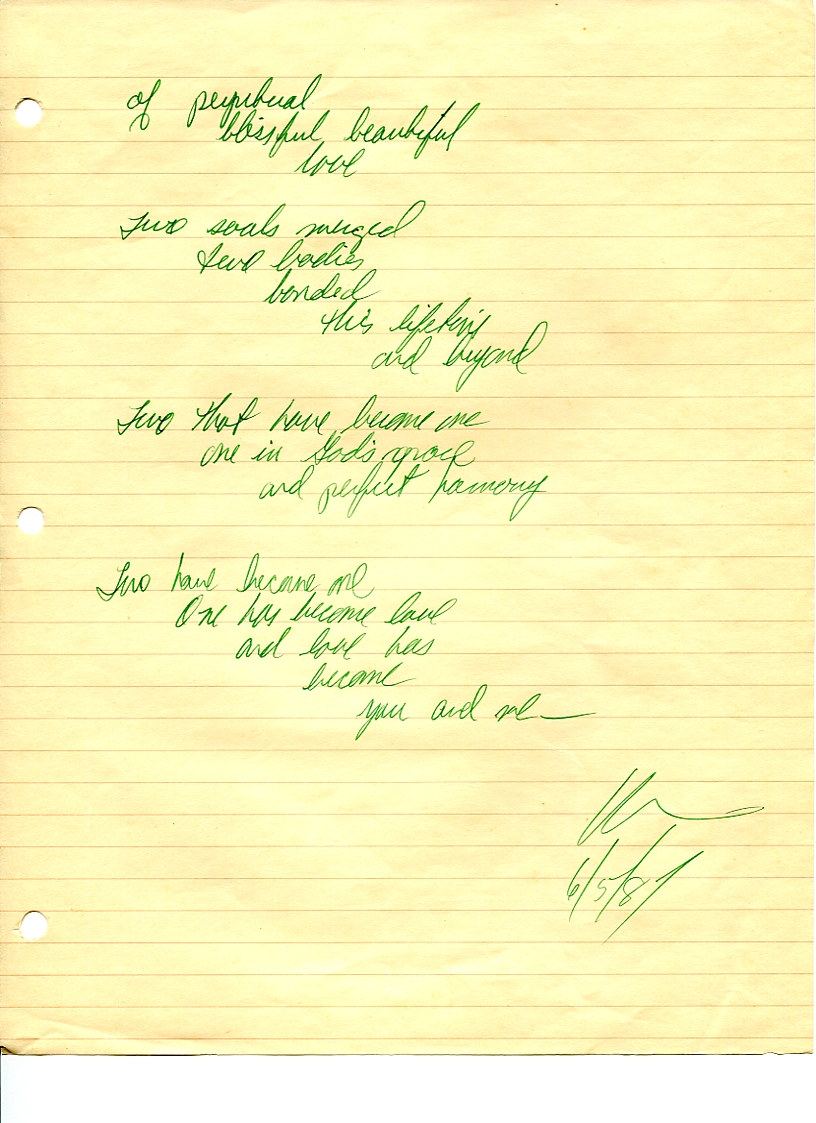 of perpetual
blissful beautiful
love
Two souls merged
two bodies
bonded
this lifetime
and beyond
Two that have become one
one in God's grace
and perfect harmony
Two have become one
One has become love
and love has
become
you and me—
6/5/87